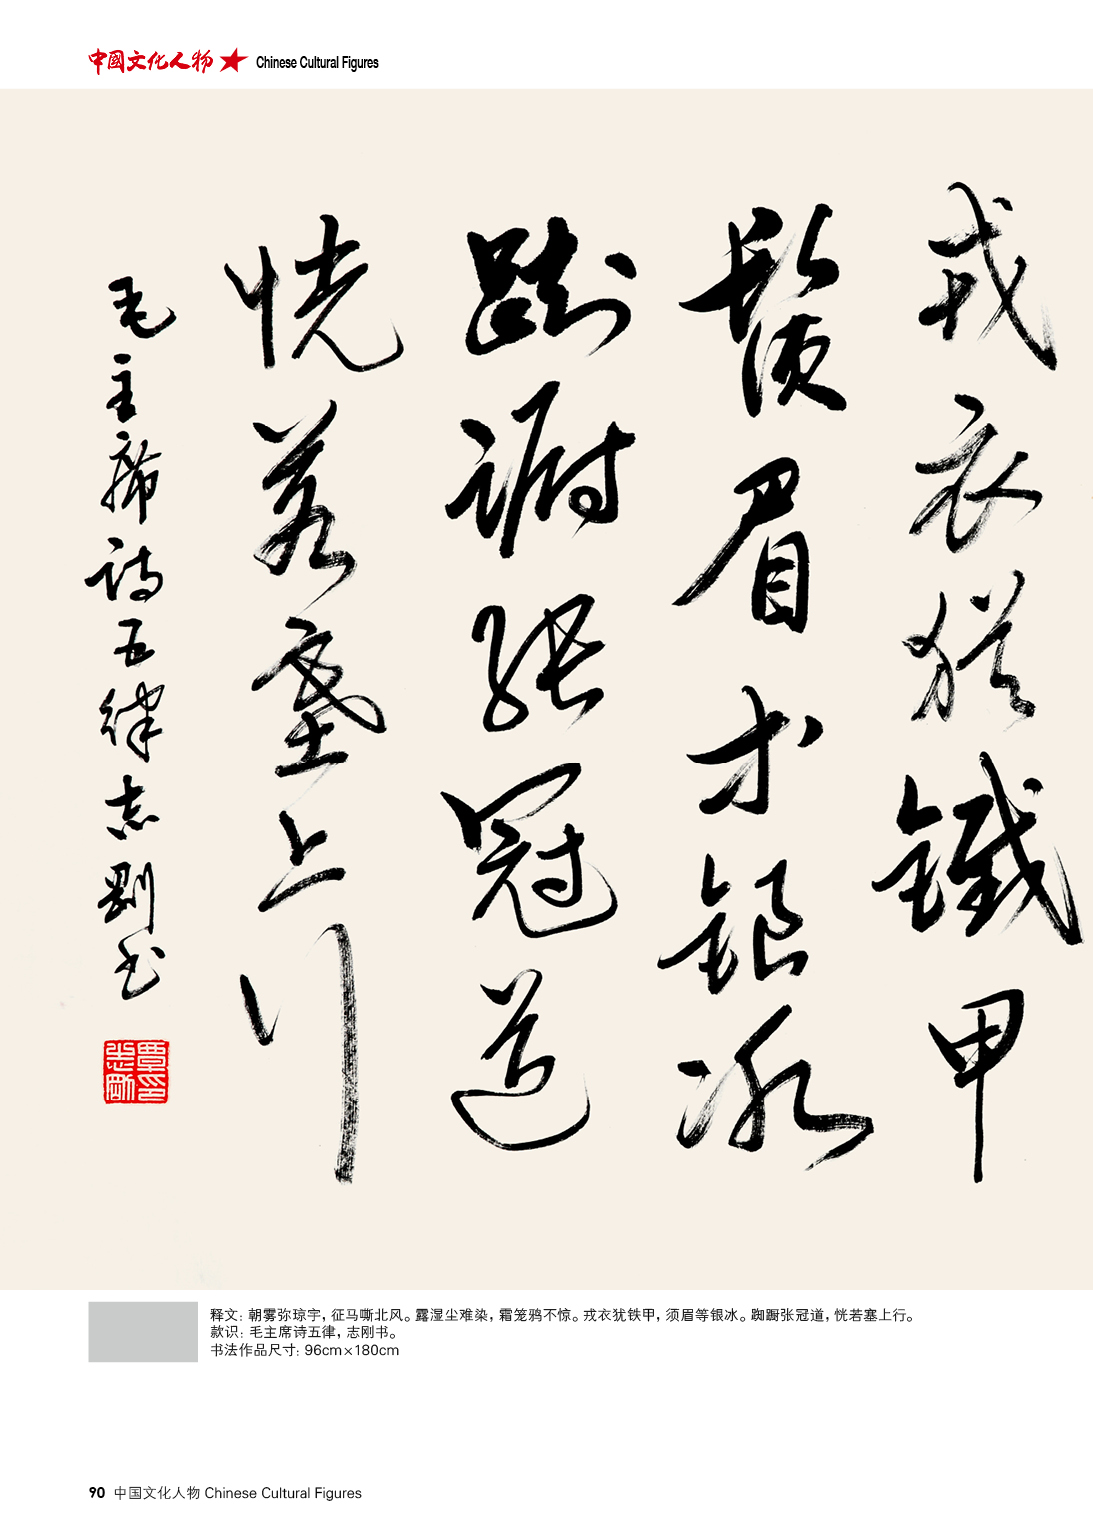 中國文化人物 Chinese Cultural Figures
戎衣猶鐵甲
鬚眉等銀冰
踟躕張冠道
恍若塞上行
毛主席詩五律志剛书
覃印志剛
释文: 朝雾弥琼宇，征马嘶北风。露湿尘难染，霜笼鸦不惊。戎衣犹铁甲，须眉等银冰。踟蹰张冠道，恍若塞上行。
款识: 毛主席诗五律，志刚书。
书法作品尺寸: 96cm×180cm
90 中国文化人物 Chinese Cultural Figures